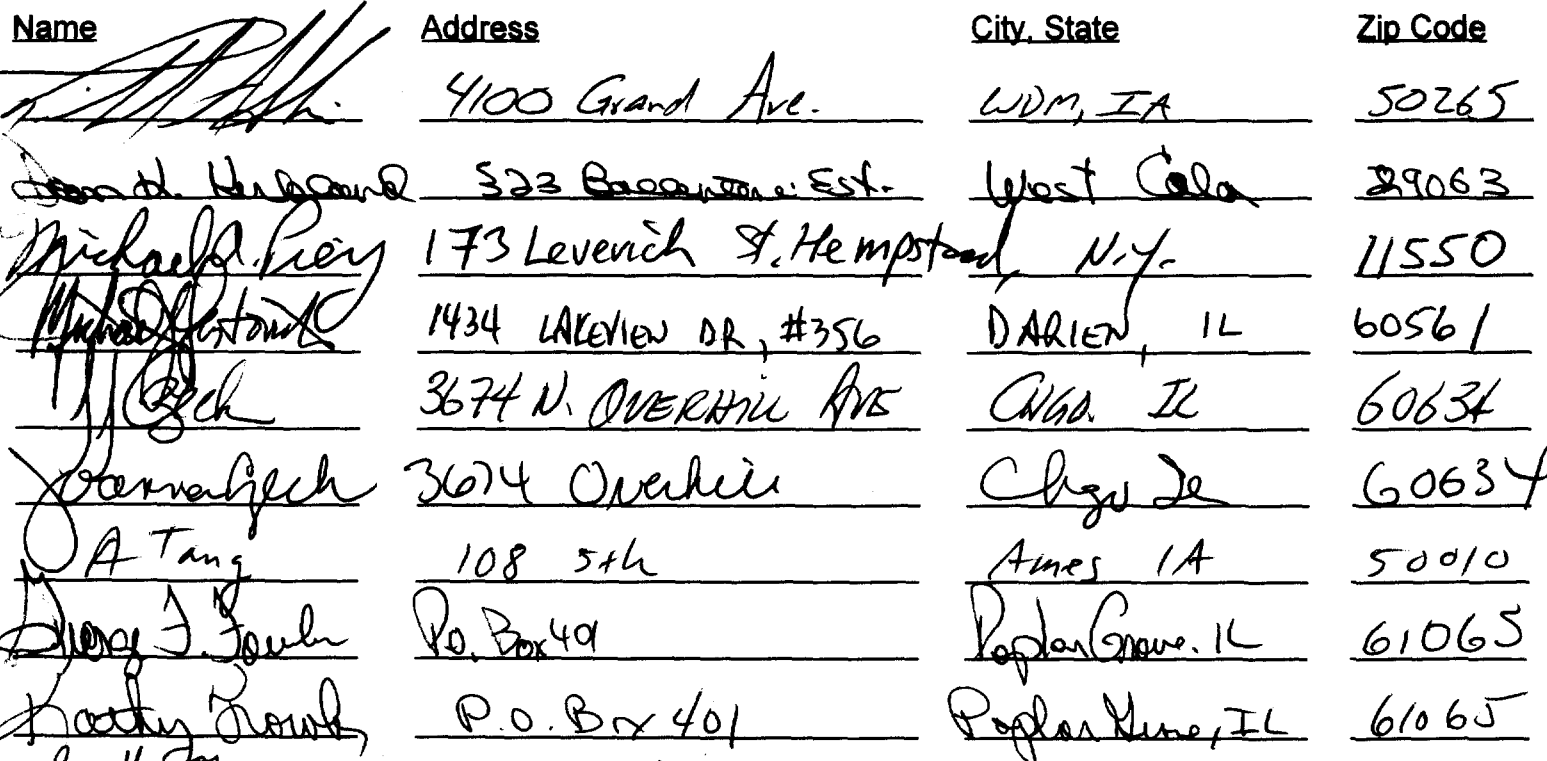 Name Address City, State Zip Code
4100 Grand Ave. WDM, IA 50265
323 Est. West Cola 29063
Michael Q. Piery 173 Leverich St. Hempstead, N.Y. 11550
Michael 1434 LAKEVIEW DR, #356 DARIEN, IL 60561
Czech 3674 N. OVERHILL AVE CHGO. IL 60634
Joanna Czech 3674 Overhill Chgo Il 60634
A Tang 108 5th Ames IA 50010
George F. P.O. Box 401 Poplar Grove. IL 61065
Kathy P.O. Box 401 Poplar Grove, IL 61065